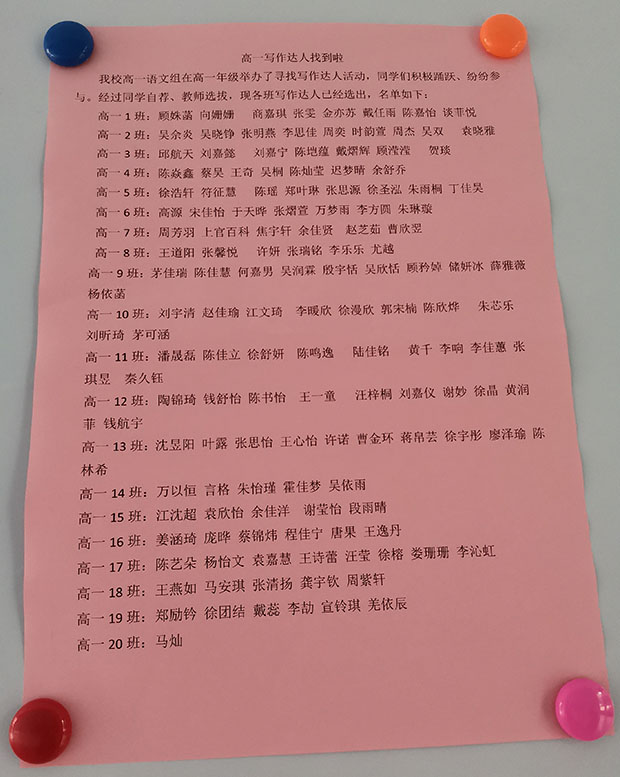 高一写作达人找到啦
我校高一语文组在高一年级举办了寻找写作达人活动，同学们积极踊跃、纷纷参
与。经过同学自荐、教师选拔，现各班写作达人已经选出，名单如下：
高一 1 班：顾姝菡 向姗姗 商嘉琪 张雯 金亦苏 戴任雨 陈嘉怡 谈菲悦
高一 2 班：吴余炎 吴晓铮 张明燕 李思佳 周奕 时韵萱 周杰 吴双 袁晓雅
高一 3 班：邱航天 刘嘉懿 刘嘉宁 陈垲蕴 戴熠辉 顾滢滢 贺琰
高一 4 班：陈焱鑫 蔡昊 王奇 吴桐 陈灿莹 迟梦晴 余舒乔
高一 5 班：徐浩轩 符征慧 陈瑶 郑叶琳 张思源 徐圣泓 朱雨桐 丁佳昊
高一 6 班：高源 宋佳怡 于天晔 张熠萱 万梦雨 李方圆 朱琳璇
高一 7 班：周芳羽 上官百科 焦宇轩 余佳贤 赵芝茹 曹欣翌
高一 8 班：王道阳 张馨悦 许妍 张瑞铭 李乐乐 尤越
高一 9 班：茅佳瑞 陈佳慧 何嘉男 吴润霖 殷宇恬 吴欣恬 顾矜婥 储妍冰 薛雅薇
杨依菡
高一 10 班：刘宇清 赵佳瑜 江文琦 李暖欣 徐漫欣 郭宋楠 陈欣烨 朱芯乐
刘昕琦 茅可涵
高一 11 班：潘晟磊 陈佳立 徐舒妍 陈鸣逸 陆佳铭 黄千 李响 李佳蕙 张
琪昱 秦久钰
高一 12 班：陶锦琦 钱舒怡 陈书怡 王一童 汪梓桐 刘嘉仪 谢妙 徐晶 黄润
菲 钱航宇
高一 13 班：沈昱阳 叶露 张思怡 王心怡 许诺 曹金环 蒋帛芸 徐宇彤 廖泽瑜 陈
林希
高一 14 班：万以恒 言格 朱怡瑾 霍佳梦 吴依雨
高一 15 班：江沈超 袁欣怡 余佳洋 谢莹怡 段雨晴
高一 16 班：姜涵琦 庞晔 蔡锦炜 程佳宁 唐果 王逸丹
高一 17 班：陈艺朵 杨怡文 袁嘉慧 王诗蕾 汪莹 徐榕 娄珊珊 李沁虹
高一 18 班：王燕如 马安琪 张清扬 龚宇钦 周紫轩
高一 19 班：郑励钤 徐团结 戴蕊 李劼 宣铃琪 羌依辰
高一 20 班：马灿